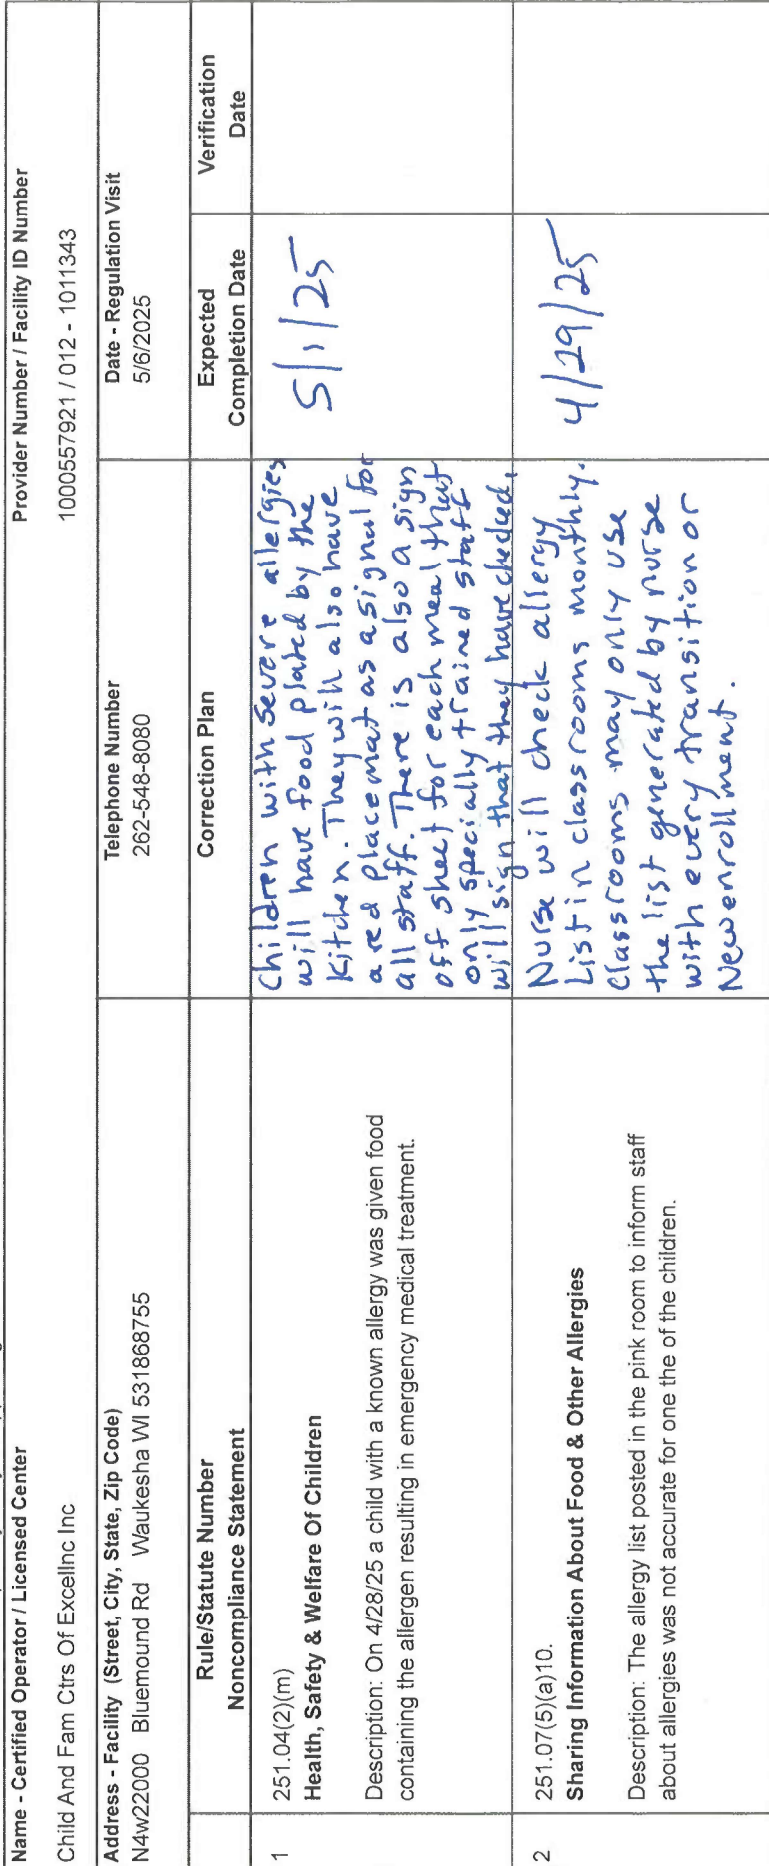 Name - Certified Operator / Licensed Center
Provider Number / Facility ID Number
Child And Fam Ctrs Of Excellnc Inc
1000557921 / 012 - 1011343
Address - Facility (Street, City, State, Zip Code)
Telephone Number
Date - Regulation Visit
N4w22000 Bluemound Rd Waukesha WI 531868755
262-548-8080
5/6/2025
Rule/Statute Number
Noncompliance Statement
Correction Plan
Expected
Completion Date
Verification
Date
1
251.04(2)(m)
Health, Safety & Welfare Of Children
Description: On 4/28/25 a child with a known allergy was given food
containing the allergen resulting in emergency medical treatment.
Children with severe allergies
will have food plated by the
Kitchen. They will also have
a red placemat as a signal for
all staff. There is also a sign
off sheet for each meal that
only specially trained staff
will sign that they have checked.
5/1/25
2
251.07(5)(a)10.
Sharing Information About Food & Other Allergies
Description: The allergy list posted in the pink room to inform staff
about allergies was not accurate for one the of the children.
Nurse will check allergy
List in classrooms monthly.
Classrooms may only use
the list generated by nurse
with every transition or
New enrollment.
4/29/25